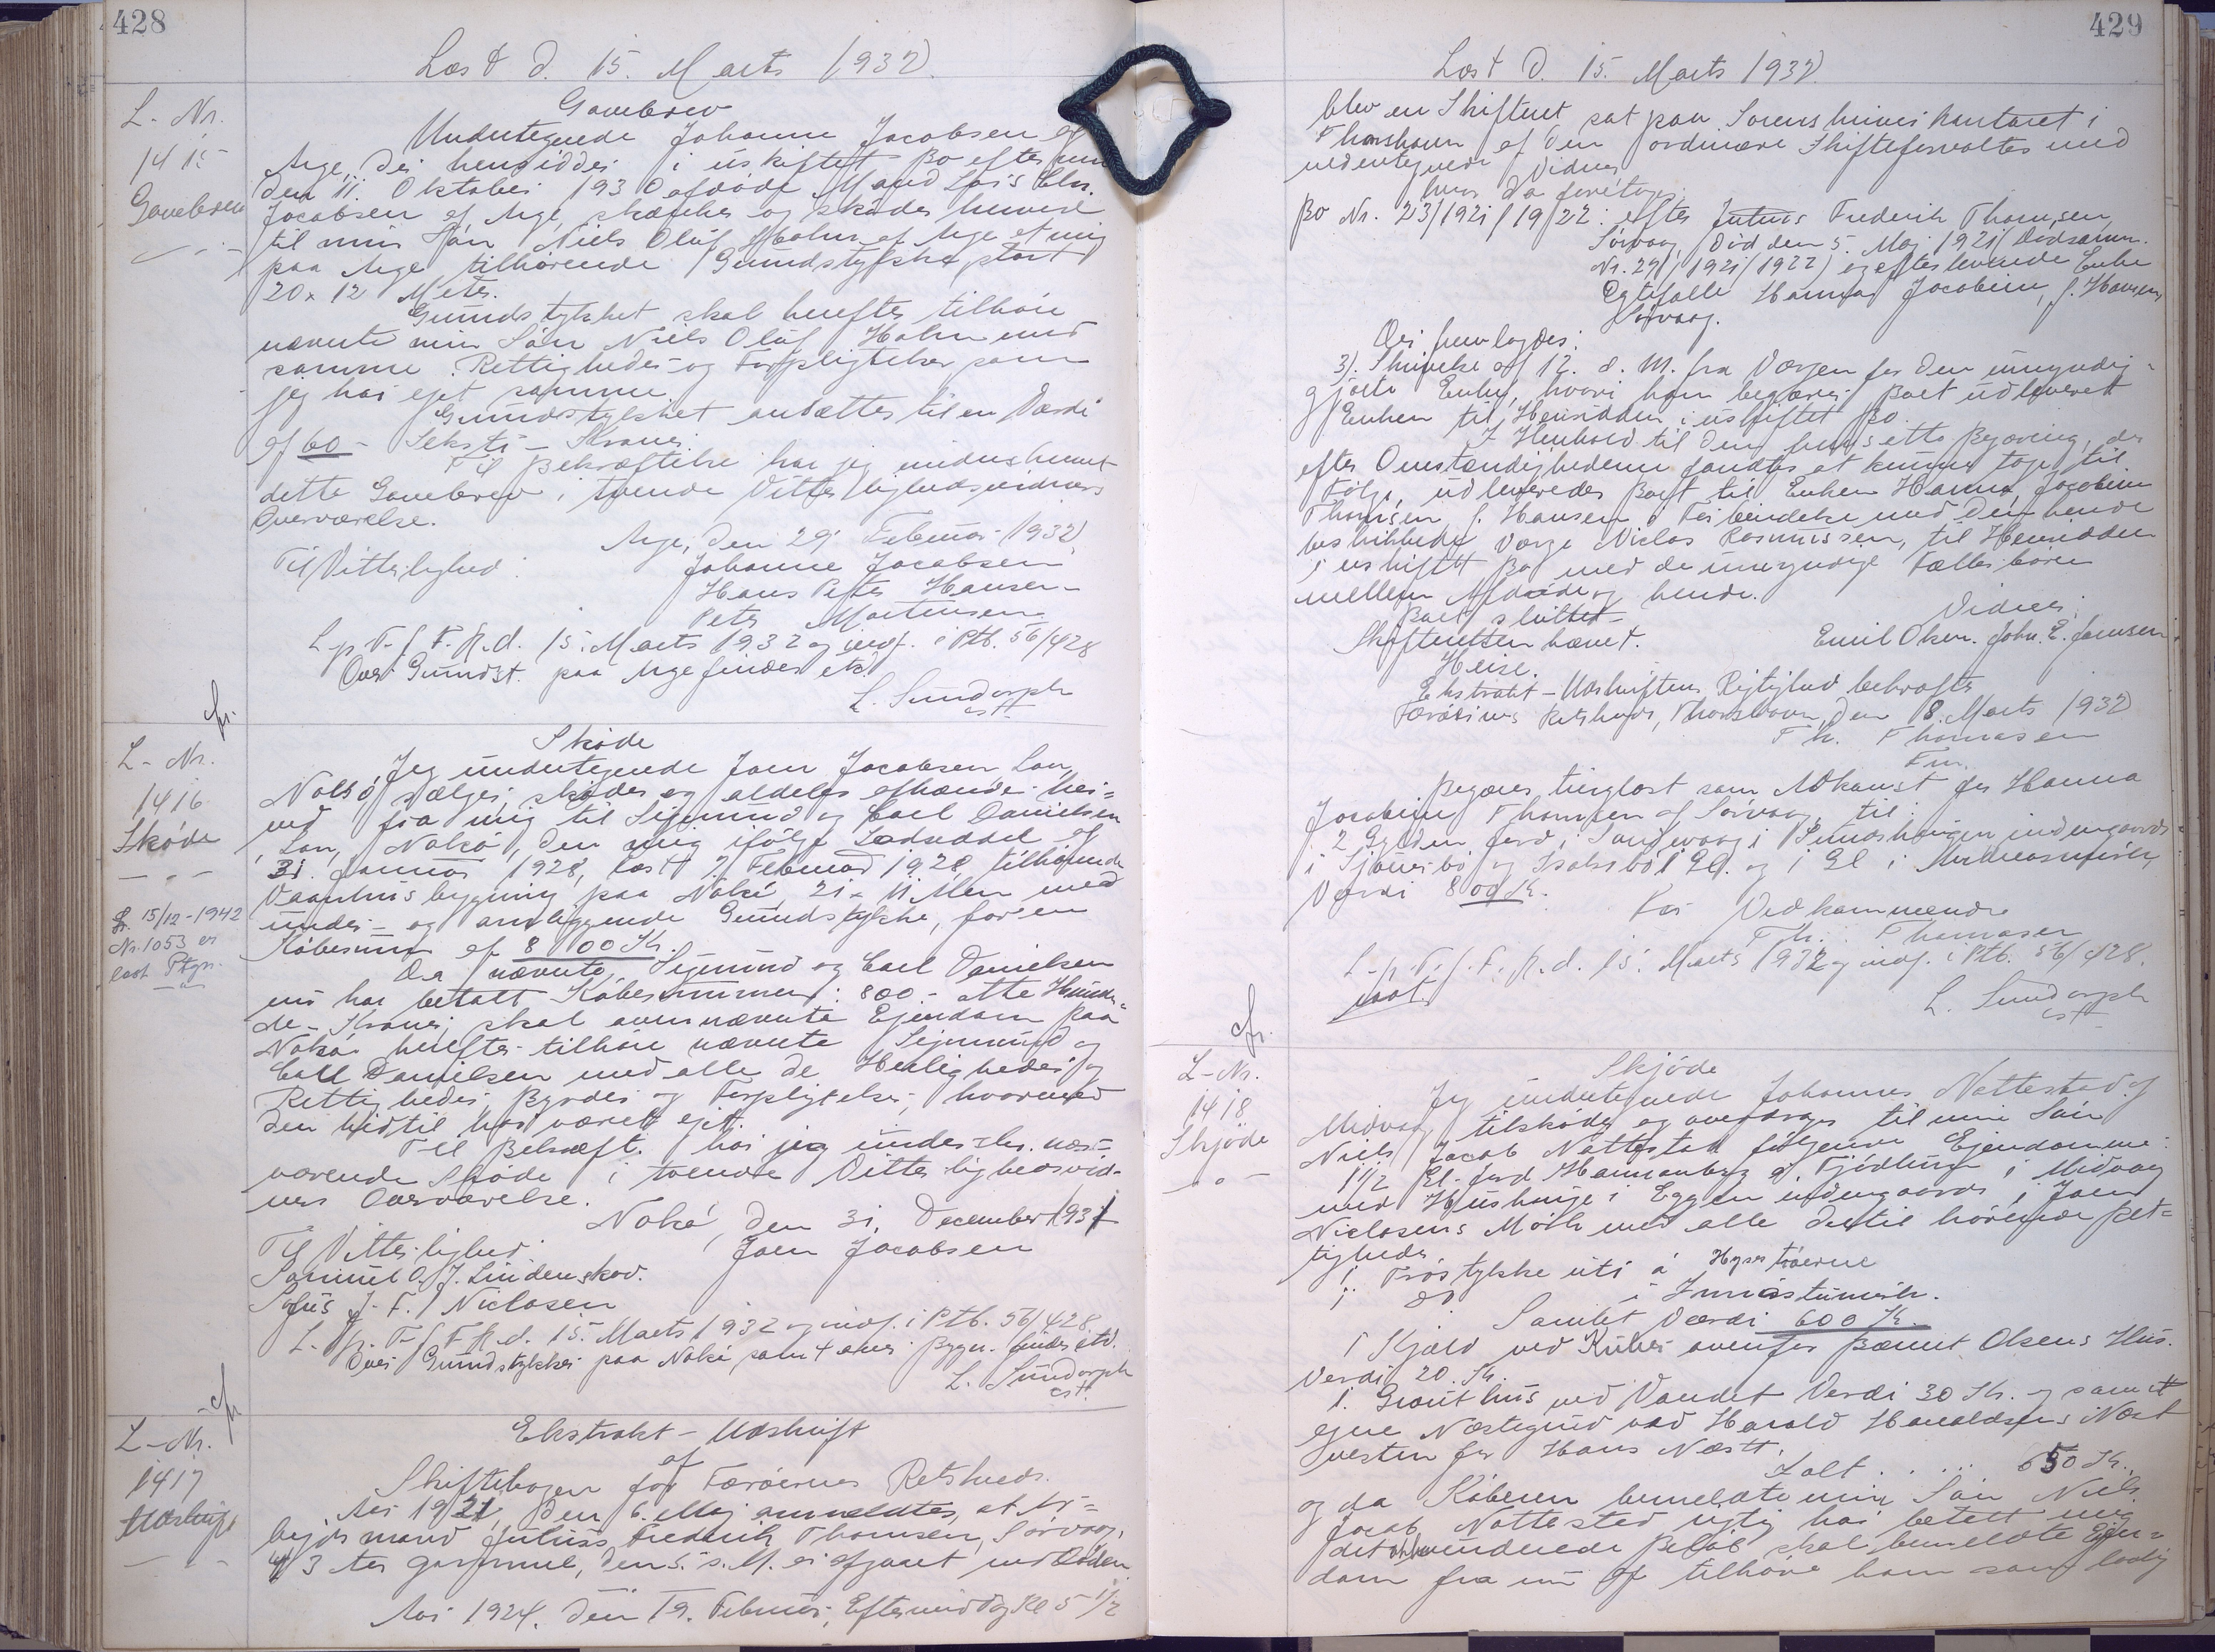 428
Læst d. 15. Marts 1932.
L-Nr.
1415
Gavebrev
Gavebrev
Undertegnede Johanne Jacobsen af
Arge, der hensidder i uskiftet Bo efter min
den 11. Oktober 1930 afdøde Mand Lois Chr.
Jacobsen af Arge, skænker og skøder herved
til min Søn Niels Oluf Holm af Arge et mig
paa Arge tilhørende Grundstykke stort
20 x 12 Meter.
Grundstykket skal herefter tilhøre
nævnte min Søn Niels Oluf Holm med
samme Rettigheder og Forpligtelser som
jeg har ejet samme.
Grundstykket ansættes til en Værdi
af 60 - Seksti - Kroner.
Til Bekræftelse har jeg underskrevet
dette Gavebrev i tvende Vitterlighedsvidners
Overværelse.
Arge, den 29 Februar 1932.
Til Vitterlighed: Johanne Jacobsen
Hans Peter Hansen
Peter Mortensen
L. p. T. f. F. R. d. 15. Marts 1932 og indf. i Ptb. 56/428
Over Grundst. paa Arge findes etc.
L. Sundorph
cst.
L-Nr.
1416
Skøde
15/12-1942
Nr. 1053 er
læst Ptgn.
Skøde
Jeg undertegnede Joen Jacobsen Lon,
Nolsø, sælger, skøder og aldeles afhænder her=
ved fra mig til Sigmund og Carl Danielsen
Lon, Nolsø, den mig ifølge Lodseddel af
31. Januar 1928, læst 7. Februar 1928 tilhørende
Vaanhusbygning paa Nolsø, 21 x 11 Alen med
under- og omliggende Grundstykke, for en
Købesum af 800 Kr.
Da nævnte Sigmund og Carl Danielsen
nu har betalt Købesummen: 800.- otte Hundre=
de - Kroner, skal ovennævnte Ejendom paa
Nolsø herefter tilhøre nævnte Sigmund og
Carl Danielsen med alle de Herligheder og
Rettigheder, Byrder og Forpligtelser, hvormed
den hidtil har været ejet.
Til Bekræft. har jeg underskr. nær=
værende Skøde i tvende Vitterlighedsvid-
ners Overværelse.
Nolsø, den 31. December 1931
Til Vitterlighed: Joen Jacobsen
Samuel O. J. Lindenskov.
J. F. Niclasen
L. p. T. f. F. R. d. 15. Marts 1932 og indf. i Ptb. 56/428
Over Grundstykker paa Nolsø, samt over Bygn. findes etc.
L. Sundorph
cst.
L-Nr.
1417
Udskrift
Ekstrakt - Udskrift
af
Skiftebogen for Færøernes Retskreds.
Aar 1921, den 6. Maj anmeldtes, at Ar=
bejdsmand Julius Frederik Thomsen, Sørvaag,
43 Aar gammel, den 5. s. M. er afgaaet ved Døden.
Aar 1924. den 19. Februar, Eftermiddag Kl 5 1/2
429
Læst d. 15. Marts 1932.
blev en Skifteret sat paa Sorenskriverkontoret i
Thorshavn af den ordinære Skifteforvalter med
undertegnede Vidner,
hvor da foretoges:
Bo Nr. 23/1921/1922: efter Julius Frederik Thomsen,
Sørvaag, død den 5. Maj 1921 (Dødsanm.
Nr. 29/1921/1922) og efterlevende Enke
Egtefælle Hanna Jacobine, f. Hansen,
Sørvaag.
Der fremlagdes:
3). Skrivelse af 12. d. M. fra Værgen for den umyndig-
gjorte Enke, hvori han begærer Boet udleveret
Enken til Hensidden i uskiftet Bo.
I Henhold til den fremsatte Begæring, der
efter Omstændighederne fandtes at kunne tages til
Følge, udleveredes Boet til Enken Hanna Jacobine
Thomsen f. Hansen i Forbindelse med den hende
beskikkede Værge Niclas Rasmussen, til Hensidden
i uskiftet Bo med de umyndige Fællesbørn
mellem Afdøde og hende.
Boet sluttet.
Skifteretten hævet. Vidner:
Heise. Emil Olsen. Johs. E. Joensen
Ekstrakt-Udskriftens Rigtighed bekræftes
Færøernes Retskreds, Thorshavn, den 8. Marts 1932
Th. Thomasen
Fm.
Begæres tinglæst som Adkomst for Hanna
Jacobine Thomsen af Sørvaag til:
2 Gylden Jord i Sandevaag i indengaards
i og 1 Gl. og 1 Gl i
Værdi 800 Kr.
For Vedkommende
Th. Thomasen
L. p. T. f. F. R. d. 15. Marts 1932 og indf. i Ptb. 56/428.
L. Sundorph
cst
L-Nr.
1418
Skjøde
Skjøde
Jeg undertegnede Johannes Nattestad af
Midvaag tilskøder og overdrager til min Søn
Niels Jacob Nattestad følgende Ejendomme:
1 1/2 Gl. Jord i Midvaag
med Hushauge i indengaards i Joen
Niclasens Mørk med alle dertil hørende Ret=
tigheder
1 Trøstykke uti á
1 do i
Samlet Værdi 600 Kr.
1 Kjald ved ovenfor Olsens Hus.
Værdi 20. Kr.
1. Grouthus ved Vandet Verdi 30 Kr. og samt
egne Næstegrund ved Harald Haraldsens Næst
vesten for Hans Næst.
Ialt ..... 650 Kr.
og da Køberen bemeldte min Søn Niels
Jacob Nattestad rigtig har betalt mig
det Beløb skal bemeldte Ejen=
dom fra nu af tilhøre ham som lovlig